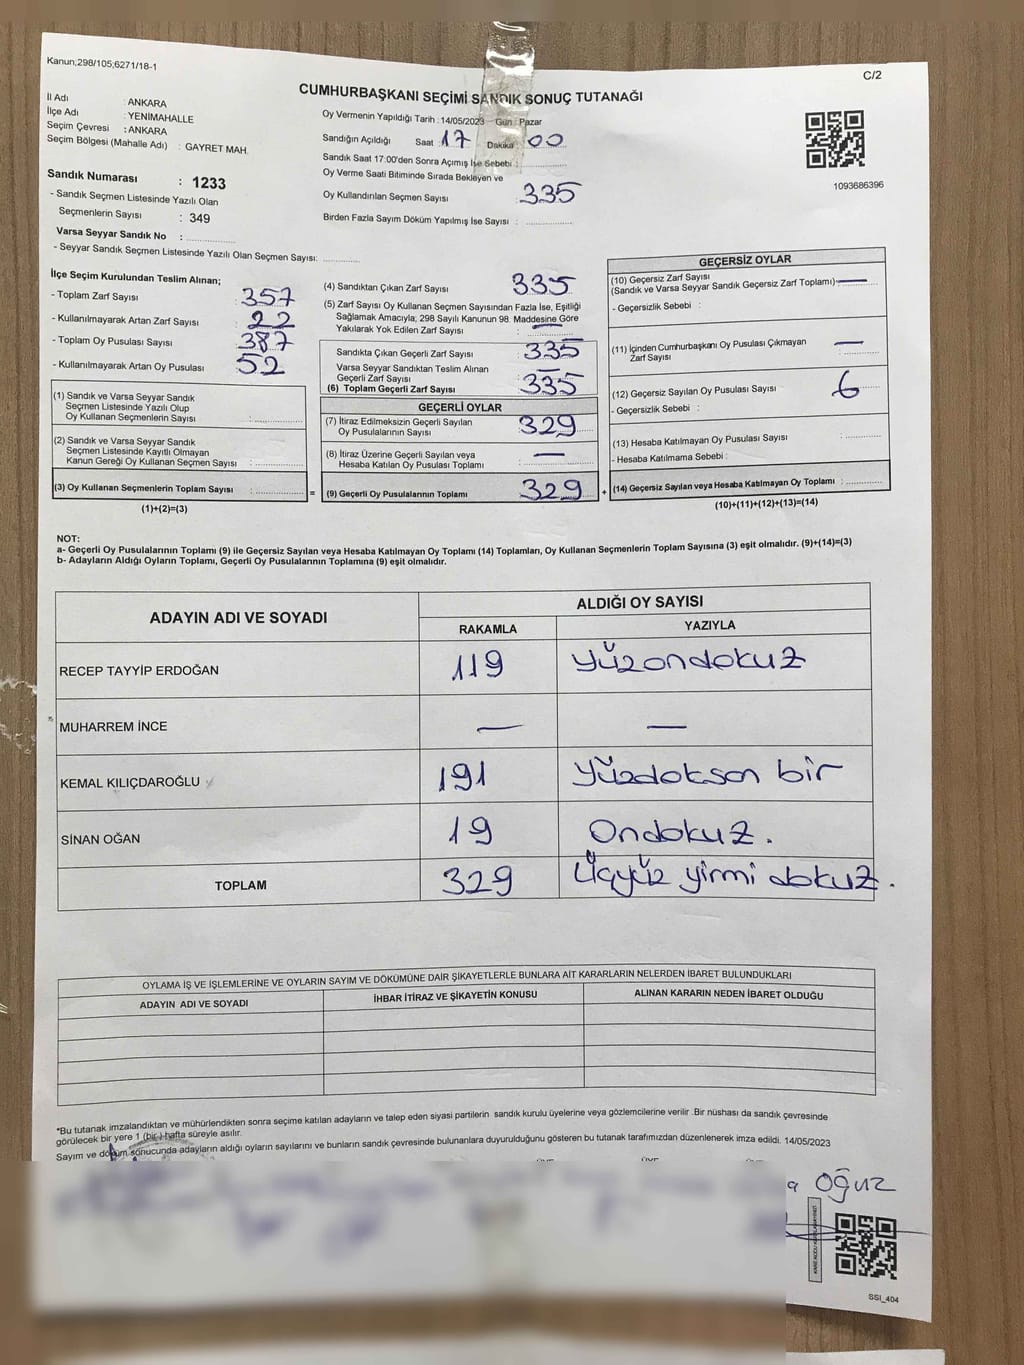 Kanun;298/105;6271/18-1
C/2
CUMHURBAŞKANI SEÇİMİ SANDIK SONUÇ TUTANAĞI
İl Adı : ANKARA
İlçe Adı : YENİMAHALLE
Seçim Çevresi : ANKARA
Seçim Bölgesi (Mahalle Adı) : GAYRET MAH.
Oy Vermenin Yapıldığı Tarih : 14/05/2023 Gün : Pazar
Sandığın Açıldığı Saat : 17 Dakika : 00
Sandık Saat 17:00'den Sonra Açımış İse Sebebi :
Oy Verme Saati Bitiminde Sırada Bekleyen ve
Oy Kullandırılan Seçmen Sayısı : 335
Birden Fazla Sayım Döküm Yapılmış İse Sayısı :
1093686396
Sandık Numarası : 1233
- Sandık Seçmen Listesinde Yazılı Olan
Seçmenlerin Sayısı : 349
Varsa Seyyar Sandık No :
- Seyyar Sandık Seçmen Listesinde Yazılı Olan Seçmen Sayısı:
İlçe Seçim Kurulundan Teslim Alınan;
- Toplam Zarf Sayısı : 357
- Kullanılmayarak Artan Zarf Sayısı : 22
- Toplam Oy Pusulası Sayısı : 387
- Kullanılmayarak Artan Oy Pusulası : 52
(1) Sandık ve Varsa Seyyar Sandık
Seçmen Listesinde Yazılı Olup
Oy Kullanan Seçmenlerin Sayısı :
(2) Sandık ve Varsa Seyyar Sandık
Seçmen Listesinde Kayıtlı Olmayan
Kanun Gereği Oy Kullanan Seçmen Sayısı :
(3) Oy Kullanan Seçmenlerin Toplam Sayısı :
(1)+(2)=(3)
(4) Sandıktan Çıkan Zarf Sayısı : 335
(5) Zarf Sayısı Oy Kullanan Seçmen Sayısından Fazla İse, Eşitliği
Sağlamak Amacıyla; 298 Sayılı Kanunun 98. Maddesine Göre
Yakılarak Yok Edilen Zarf Sayısı : —
Sandıkta Çıkan Geçerli Zarf Sayısı : 335
Varsa Seyyar Sandıktan Teslim Alınan
Geçerli Zarf Sayısı : —
(6) Toplam Geçerli Zarf Sayısı : 335
GEÇERLİ OYLAR
(7) İtiraz Edilmeksizin Geçerli Sayılan
Oy Pusulalarının Sayısı : 329
(8) İtiraz Üzerine Geçerli Sayılan veya
Hesaba Katılan Oy Pusulası Toplamı : —
= (9) Geçerli Oy Pusulalarının Toplamı : 329
GEÇERSİZ OYLAR
(10) Geçersiz Zarf Sayısı
(Sandık ve Varsa Seyyar Sandık Geçersiz Zarf Toplamı) —
- Geçersizlik Sebebi :
(11) İçinden Cumhurbaşkanı Oy Pusulası Çıkmayan
Zarf Sayısı : —
(12) Geçersiz Sayılan Oy Pusulası Sayısı : 6
- Geçersizlik Sebebi :
(13) Hesaba Katılmayan Oy Pusulası Sayısı :
- Hesaba Katılmama Sebebi :
+ (14) Geçersiz Sayılan veya Hesaba Katılmayan Oy Toplamı :
(10)+(11)+(12)+(13)=(14)
NOT:
a- Geçerli Oy Pusulalarının Toplamı (9) ile Geçersiz Sayılan veya Hesaba Katılmayan Oy Toplamı (14) Toplamları, Oy Kullanan Seçmenlerin Toplam Sayısına (3) eşit olmalıdır. (9)+(14)=(3)
b- Adayların Aldığı Oyların Toplamı, Geçerli Oy Pusulalarının Toplamına (9) eşit olmalıdır.
ADAYIN ADI VE SOYADI
ALDIĞI OY SAYISI
RAKAMLA YAZIYLA
RECEP TAYYİP ERDOĞAN 119 Yüzondokuz
MUHARREM İNCE — —
KEMAL KILIÇDAROĞLU 191 Yüzdokson bir
SİNAN OĞAN 19 Ondokuz.
TOPLAM 329 Üçyüz yirmi dokuz.
OYLAMA İŞ VE İŞLEMLERİNE VE OYLARIN SAYIM VE DÖKÜMÜNE DAİR ŞİKAYETLERLE BUNLARA AİT KARARLARIN NELERDEN İBARET BULUNDUKLARI
ADAYIN ADI VE SOYADI İHBAR İTİRAZ VE ŞİKAYETİN KONUSU ALINAN KARARIN NEDEN İBARET OLDUĞU
*Bu tutanak imzalandıktan ve mühürlendikten sonra seçime katılan adayların ve talep eden siyasi partilerin sandık kurulu üyelerine veya gözlemcilerine verilir .Bir nüshası da sandık çevresinde
görülecek bir yere 1 (bir ) hafta süreyle asılır.
Sayım ve döküm sonucunda adayların aldığı oyların sayılarını ve bunların sandık çevresinde bulunanlara duyurulduğunu gösteren bu tutanak tarafımızdan düzenlenerek imza edildi. 14/05/2023
Oğuz
SSİ_404